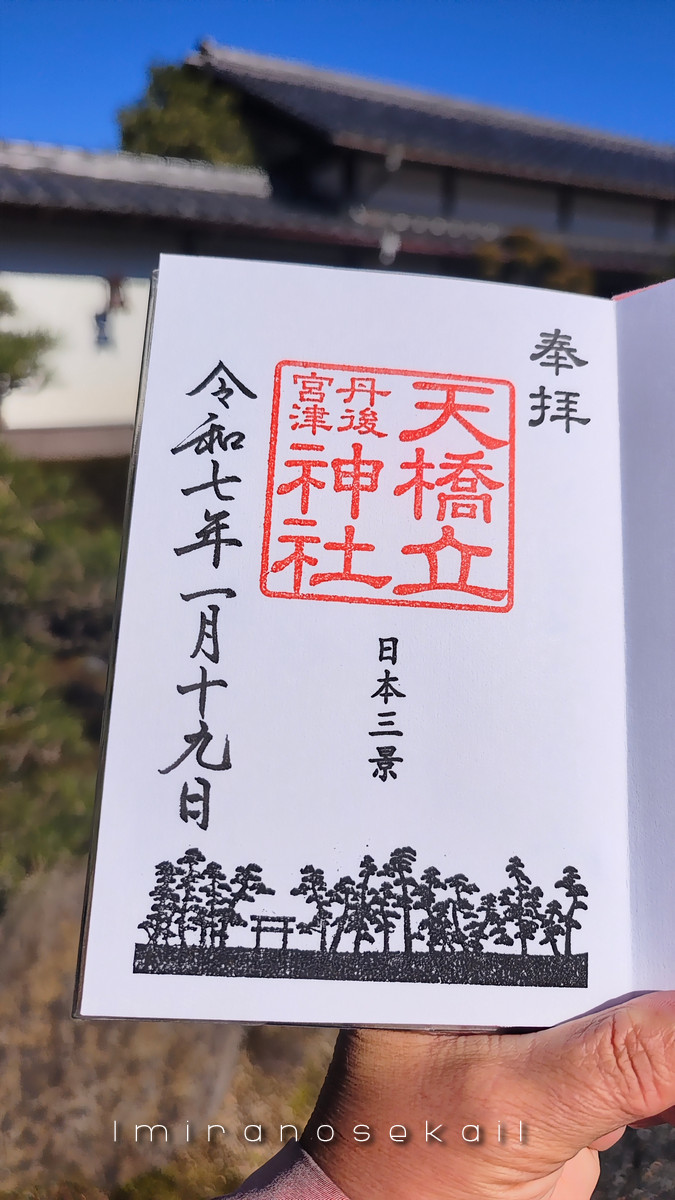 奉拝
天橋立
丹後
宮津
神社
日本三景
令和七年一月十九日
Imiranosekail